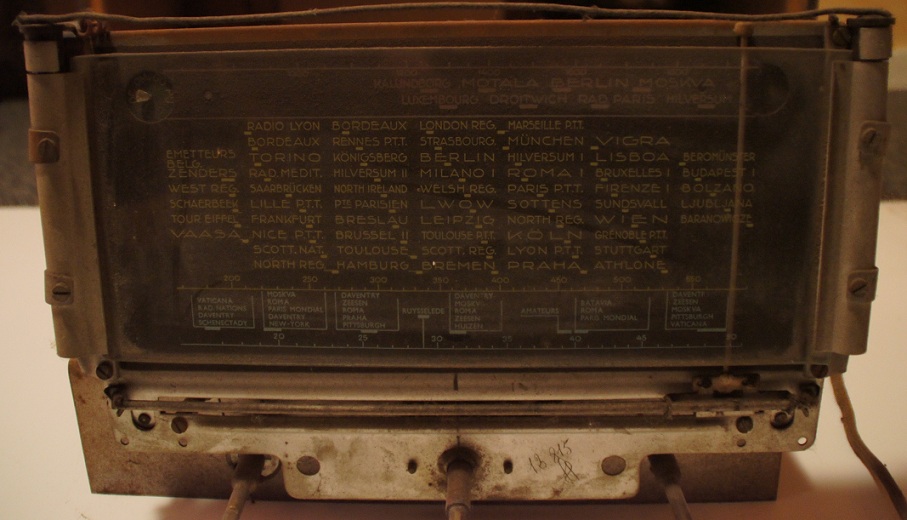 KALUNDBORG MOTALA BERLIN MOSKVA
LUXEMBOURG DROITWICH RAD. PARIS HILVERSUM
RADIO LYON BORDEAUX LONDON REG. MARSEILLE P.T.T.
BORDEAUX RENNES P.T.T. STRASBOURG MÜNCHEN VIGRA
EMETTEURS BELG. TORINO KÖNIGSBERG BERLIN HILVERSUM I LISBOA BEROMÜNSTER
ZENDERS RAD. MEDIT. HILVERSUM II MILANO I ROMA I BRUXELLES I BUDAPEST I
WEST REG. SAARBRÜCKEN NORTH IRELAND WELSH REG. PARIS P.T.T. FIRENZE I BOLZANO
SCHAERBEEK LILLE P.T.T. PTE PARISIEN LWOW SOTTENS SUNDSVALL LJUBLJANA
TOUR EIFFEL FRANKFURT BRESLAU LEIPZIG NORTH REG. WIEN
VAASA NICE P.T.T. BRUSSEL II TOULOUSE P.T.T. KÖLN GRENOBLE P.T.T.
SCOTT. NAT. TOULOUSE SCOTT. REG. LYON P.T.T. STUTTGART
NORTH REG. HAMBURG BREMEN PRAHA ATHLONE
200 250 300 350 400 450 500 550
VATICANA
RAD NATIONS
DAVENTRY
SCHENECTADY
MOSKVA
ROMA
PARIS MONDIAL
DAVENTRY
NEW-YORK
DAVENTRY
ZEESEN
ROMA
PRAHA
PITTSBURGH
RUYSSELEDE
DAVENTRY
MOSKVA
ROMA
ZEESEN
HUIZEN
AMATEURS
BATAVIA
ROMA
PARIS MONDIAL
DAVENTRY
ZEESEN
MOSKVA
PITTSBURGH
VATICANA
20 25 30 35 40 45 50
18 815